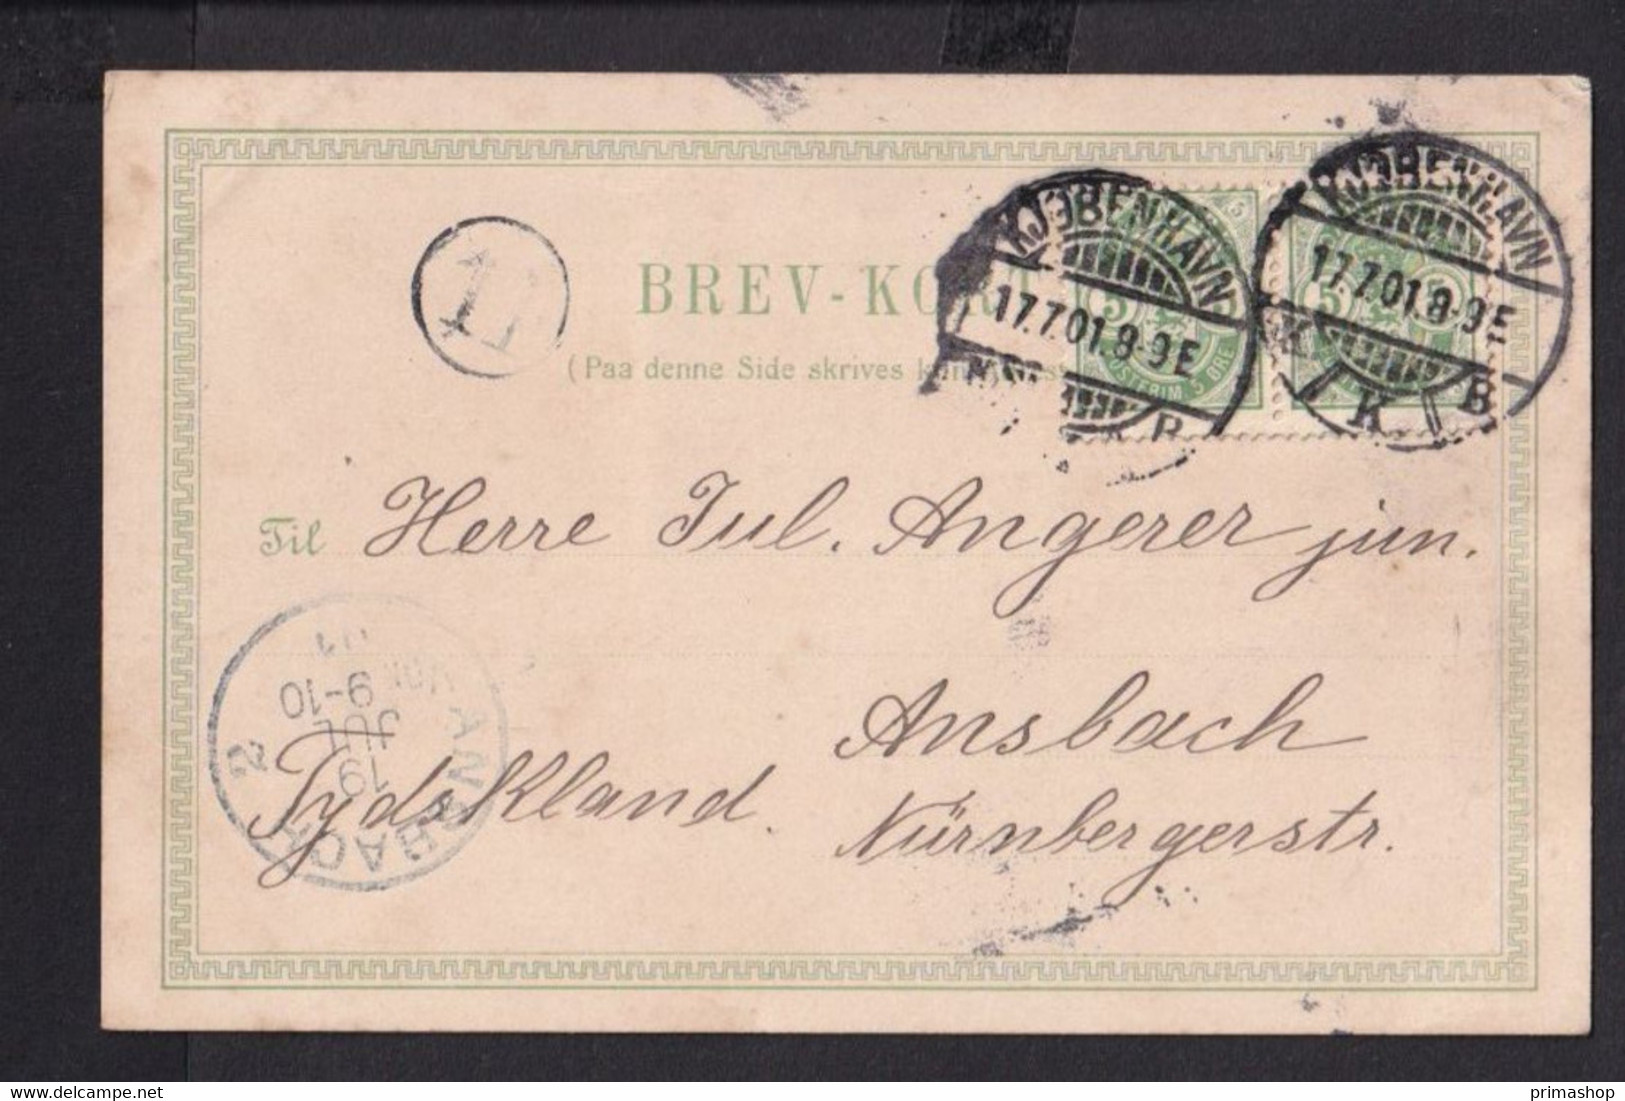 KJØBENHAVN
17.7.01.8-9E
K B
KJØBENHAVN
17.7.01.8-9E
B
POSTFRIM 5 ØRE
BREV-KORT
(Paa denne Side skrives kun
Til Herre Jul. Angerer jun.
Ansbach
Tydskland. Nürnbergerstr.
ANSBACH 2
19
JUL
9-10
VOR
01
primashop